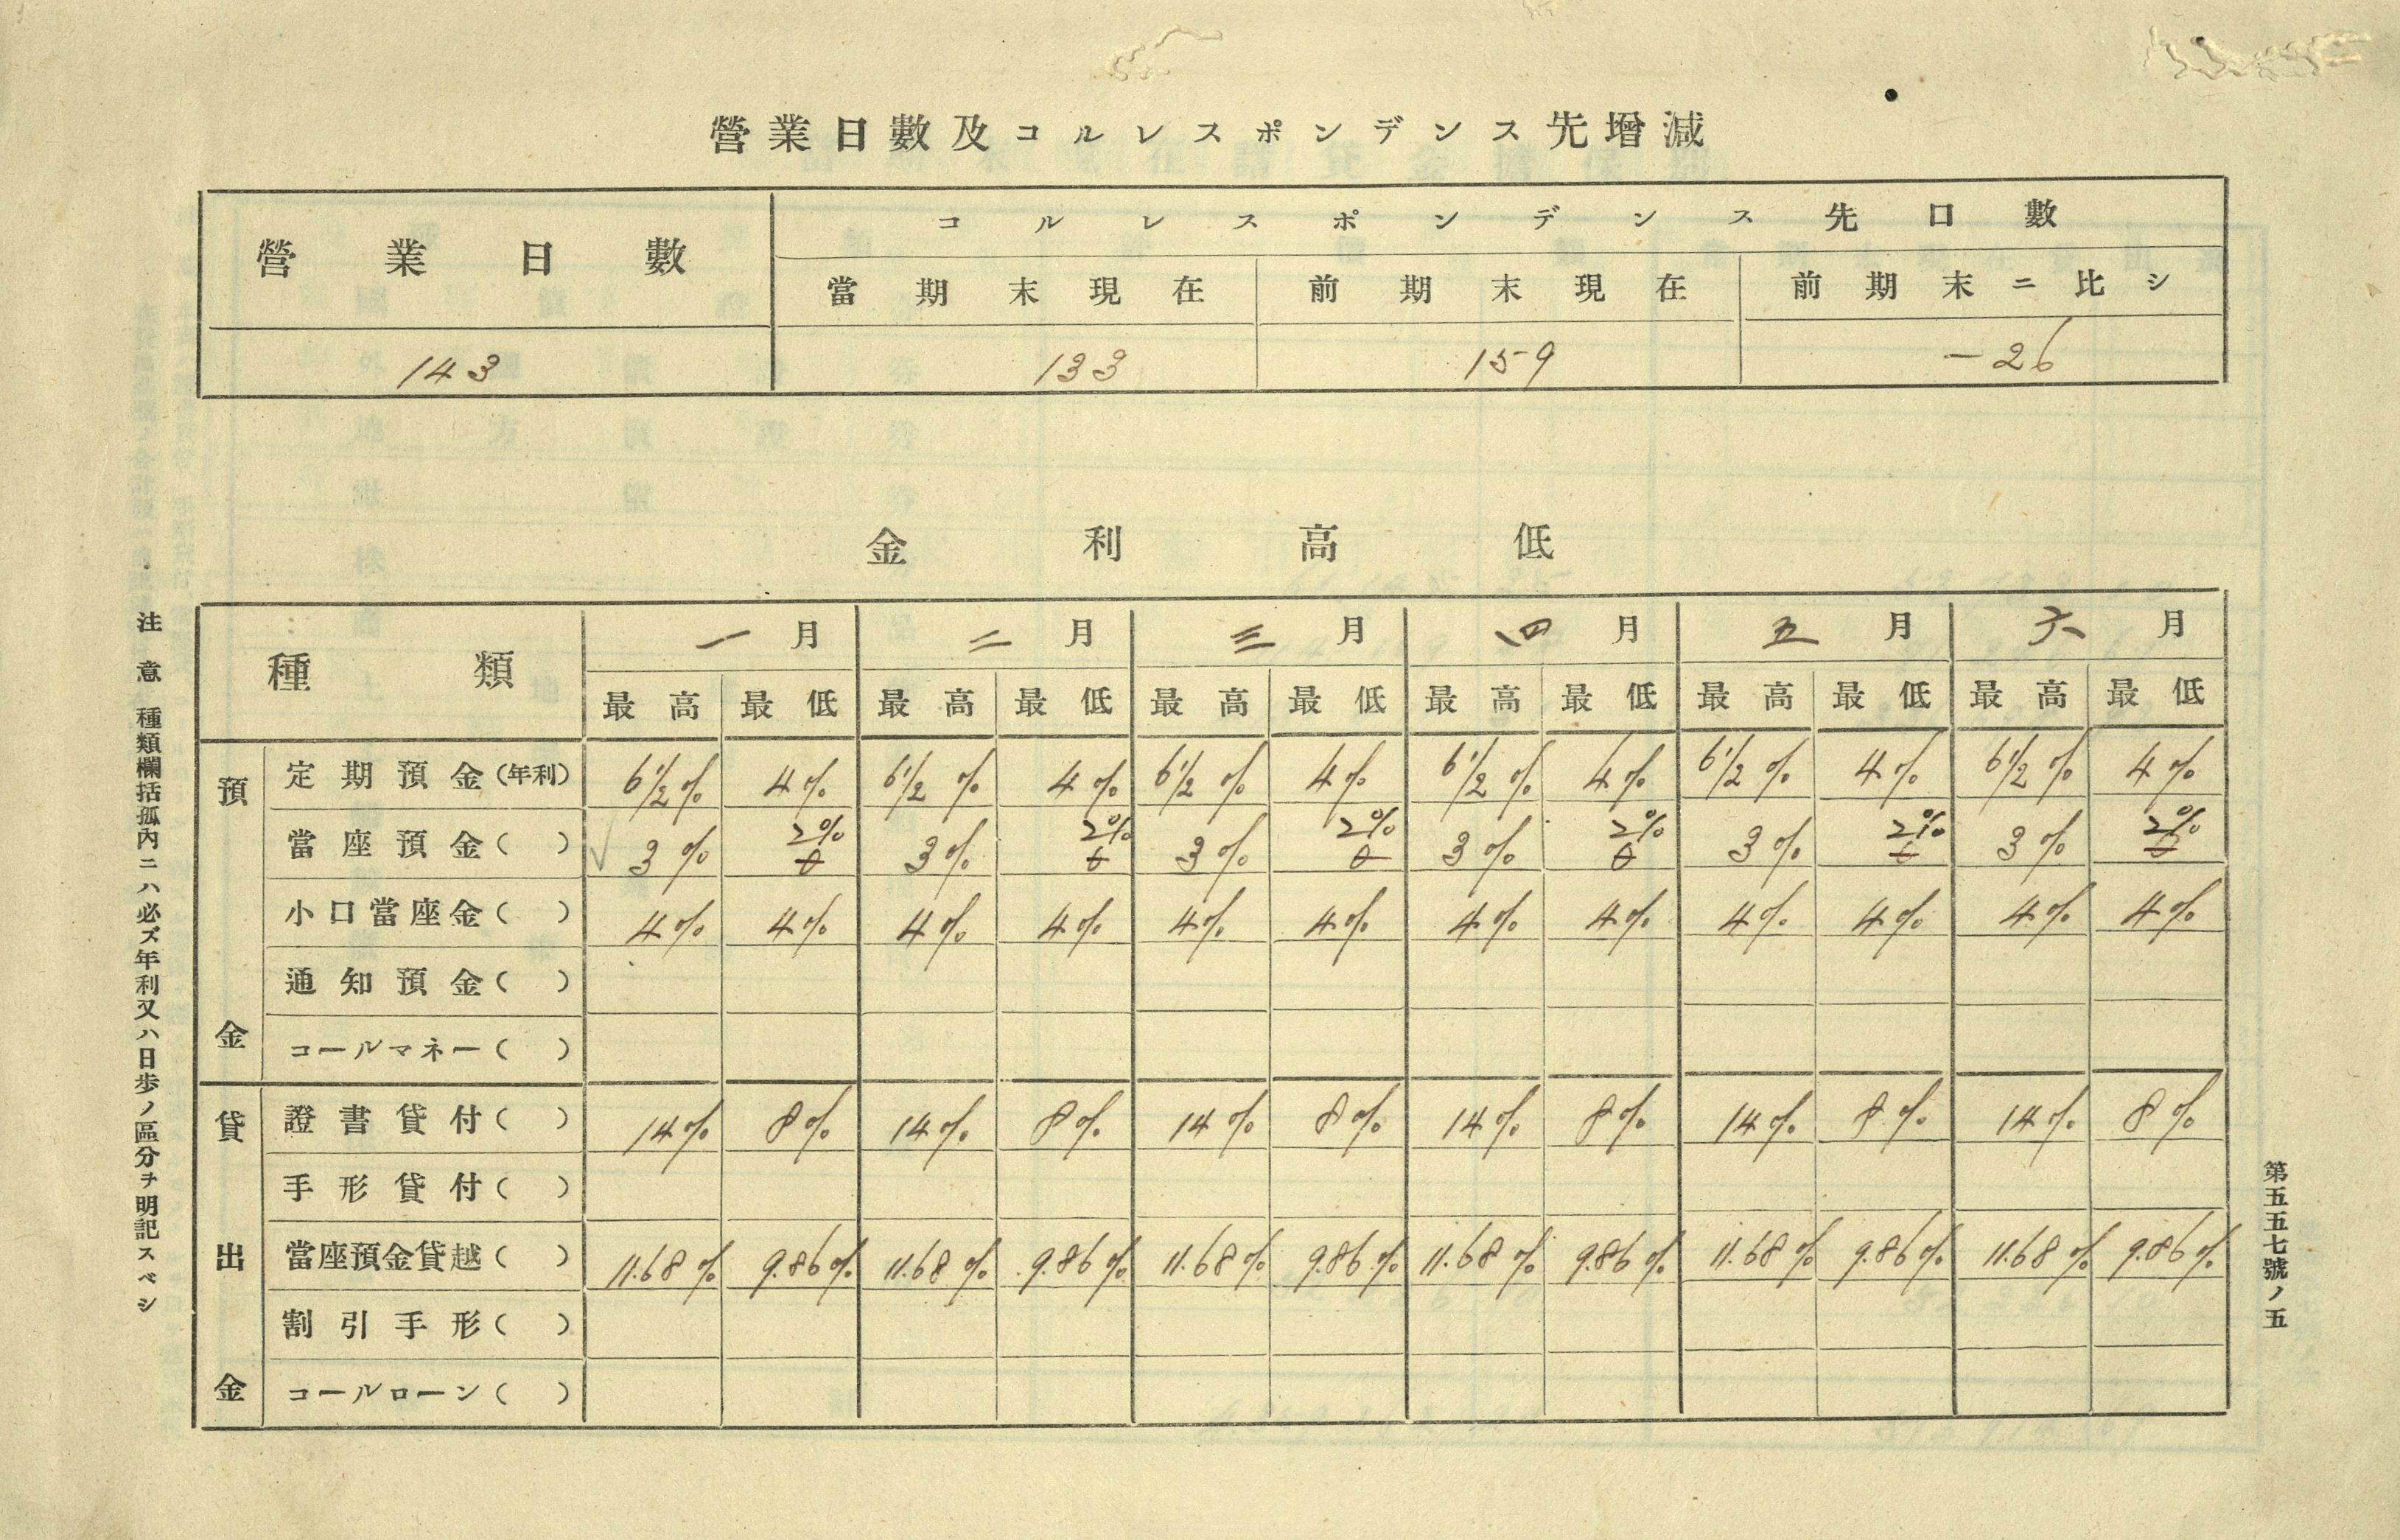 營業日數及コルレスポンデンス先增減
營業日數 コルレスポンデンス先口數
當期末現在 前期末現在 前期末ニ比シ
143 133 159 -26
金利高低
種類 一月 二月 三月 四月 五月 六月
最高 最低 最高 最低 最高 最低 最高 最低 最高 最低 最高 最低
預金
定期預金(年利) 6½% 4% 6½% 4% 6½% 4% 6½% 4% 6½% 4% 6½% 4%
當座預金( ) 3% 2% 3% 2% 3% 2% 3% 2% 3% 2% 3% 2%
小口當座金( ) 4% 4% 4% 4% 4% 4% 4% 4% 4% 4% 4% 4%
通知預金( )
コールマネー( )
貸出金
證書貸付( ) 14% 8% 14% 8% 14% 8% 14% 8% 14% 8% 14% 8%
手形貸付( )
當座預金貸越( ) 11.68% 9.86% 11.68% 9.86% 11.68% 9.86% 11.68% 9.86% 11.68% 9.86% 11.68% 9.86%
割引手形( )
コールローン( )
注意 種類欄括孤內ニハ必ズ年利又ハ日步ノ區分ヲ明記スベシ
第五五七號ノ五